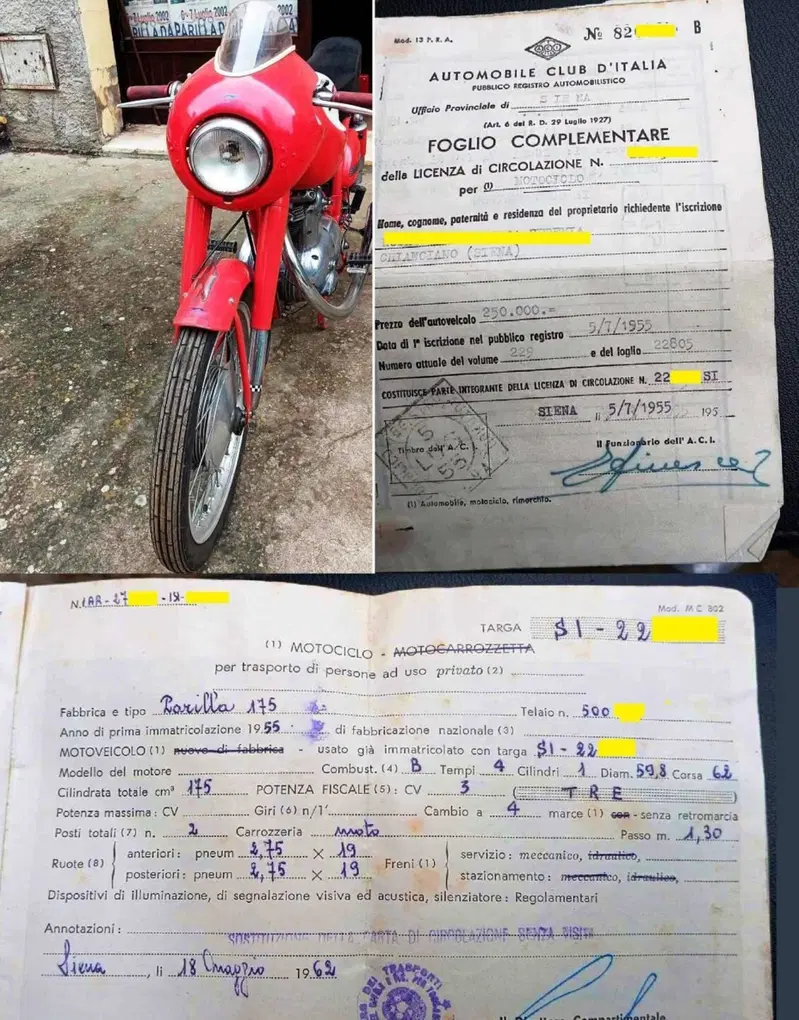 Luglio 2002
6-7 Luglio 2002
Mod. 13 P. R. A.
№ 82 B
AUTOMOBILE CLUB D'ITALIA
PUBBLICO REGISTRO AUTOMOBILISTICO
Ufficio Provinciale di SIENA
(Art. 6 del R. D. 29 Luglio 1927)
FOGLIO COMPLEMENTARE
della LICENZA di CIRCOLAZIONE N.
per (1) MOTOCICLO
Nome, cognome, paternità e residenza del proprietario richiedente l'iscrizione
CHIANCIANO (SIENA)
Prezzo dell'autoveicolo 250.000.=
Data di 1ª iscrizione nel pubblico registro 5/7/1955
Numero attuale del volume 229 e del foglio 22805
COSTITUISCE PARTE INTEGRANTE DELLA LICENZA DI CIRCOLAZIONE N. 22 SI
SIENA li 5/7/1955 195
Timbro dell'A. C. I.
Il Funzionario dell'A. C. I.
(1) Automobile, motociclo, rimorchio.
Mod. MC 802
TARGA SI-22
(1) MOTOCICLO - MOTOCARROZZETTA
per trasporto di persone ad uso privato (2)
Fabbrica e tipo Parilla 175 Telaio n. 500
Anno di prima immatricolazione 1955 di fabbricazione nazionale (3)
MOTOVEICOLO (1) nuovo di fabbrica - usato già immatricolato con targa SI-22
Modello del motore Combust. (4) B Tempi 4 Cilindri 1 Diam. 59,8 Corsa 62
Cilindrata totale cm³ 175 POTENZA FISCALE (5): CV 3 (TRE)
Potenza massima: CV Giri (6) n/1' Cambio a 4 marce (1) con - senza retromarcia
Posti totali (7) n. 2 Carrozzeria moto Passo m. 1,30
Ruote (8) anteriori: pneum 2,75 × 19 Freni (1) servizio: meccanico, idraulico,
posteriori: pneum 2,75 × 19 stazionamento: meccanico, idraulico,
Dispositivi di illuminazione, di segnalazione visiva ed acustica, silenziatore: Regolamentari
Annotazioni: SOSTITUZIONE DELLA CARTA DI CIRCOLAZIONE SENZA VISITA
Siena, li 18 Maggio 1962